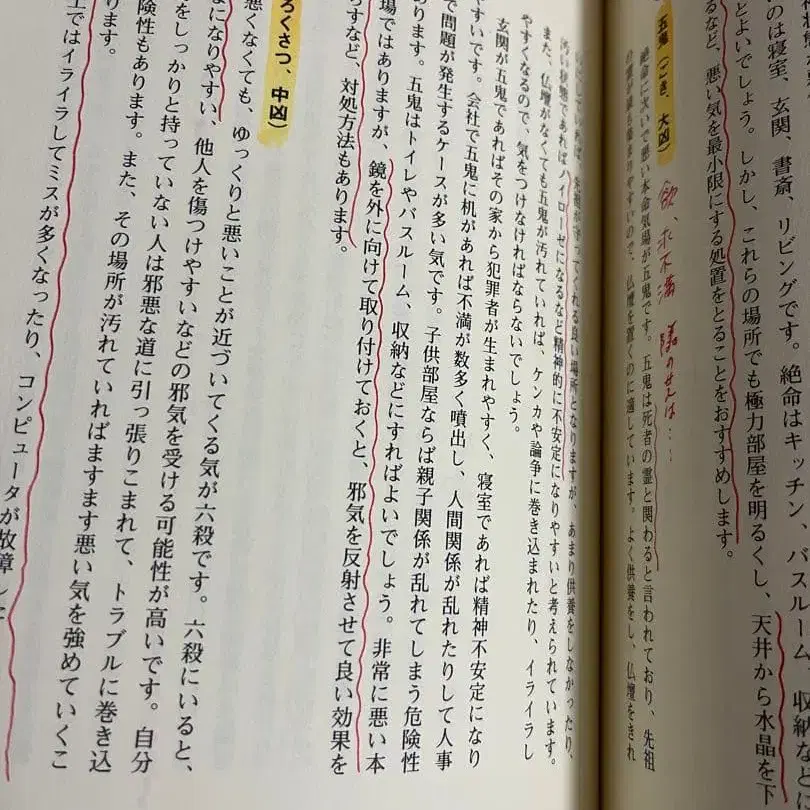 のは寝室、玄関、書斎、リビングです。絶命はキッチン、バスルーム、収納などに
とよいでしょう。しかし、これらの場所でも極力部屋を明るくし、天井から水晶を下
るなど、悪い気を最小限にする処置をとることをおすすめします。
五鬼(ごき、大凶)
絶命に次いで悪い本命気場が五鬼です。五鬼は死者の霊と関わると言われており、先祖
の霊が最も集まりやすいので、仏壇を置くのに適しています。よく供養をし、仏壇をきれ
いにしていれば、先祖が守ってくれる良い場所となりますが、あまり供養をしなかったり、
汚い状態であればハイローゼになるなど精神的に不安定になりやすいと考えられています。
また、仏壇がなくても五鬼が汚れていれば、ケンカや論争に巻き込まれたり、イライラし
やすくなるので、気をつけなければならないでしょう。
玄関が五鬼であればその家から犯罪者が生まれやすく、寝室であれば精神不安定になり
やすいです。会社で五鬼に机があれば不満が数多く噴出し、人間関係が乱れたりして人事
で問題が発生するケースが多い気です。子供部屋ならば親子関係が乱れてしまう危険性
あります。五鬼はトイレやバスルーム、収納などにすればよいでしょう。非常に悪い本
場ではありますが、鏡を外に向けて取り付けておくと、邪気を反射させて良い効果を
らすなど、対処方法もあります。
ろくさつ、中凶)
悪くなくても、ゆっくりと悪いことが近づいてくる気が六殺です。六殺にいると、
になりやすい、他人を傷つけやすいなどの邪気を受ける可能性が高いです。自分
をしっかりと持っていない人は邪悪な道に引っ張りこまれて、トラブルに巻き込
危険性もあります。また、その場所が汚れていればますます悪い気を強めていくこ
ります。
上ではイライラしてミスが多くなったり、コンピュータが故障した